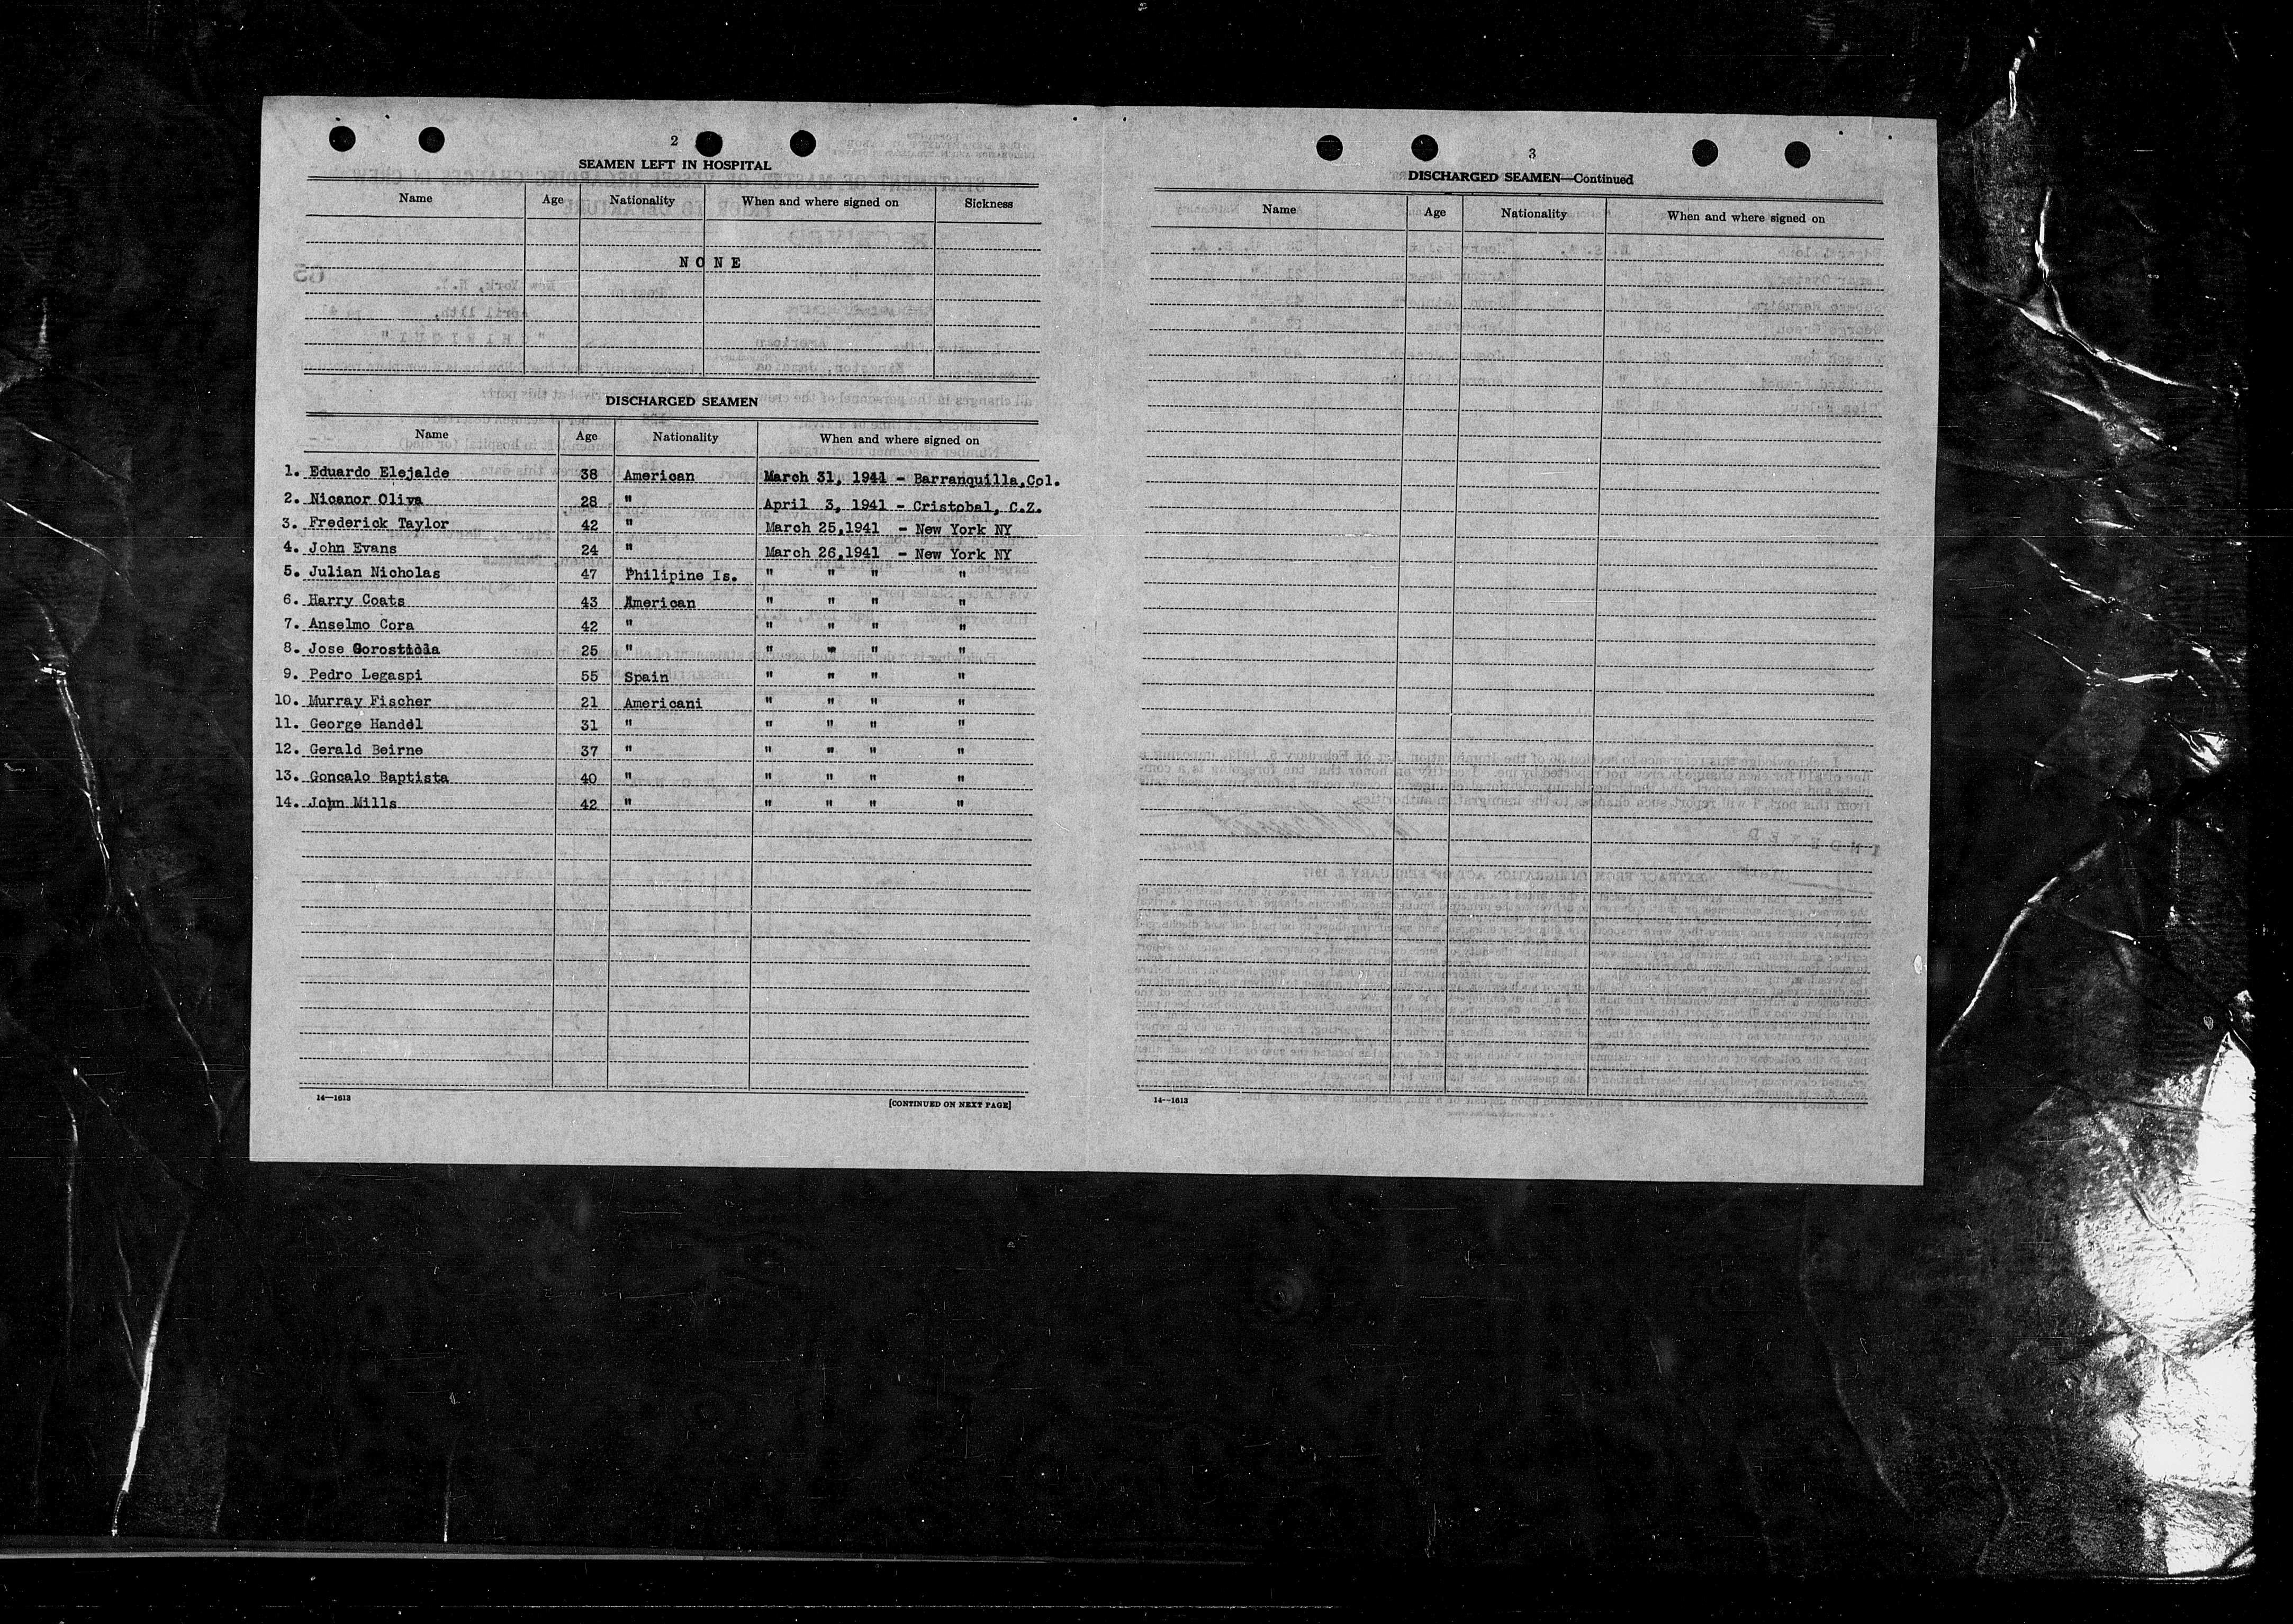 2
SEAMEN LEFT IN HOSPITAL
Name Age Nationality When and where signed on Sickness
NONE
DISCHARGED SEAMEN
Name Age Nationality When and where signed on
1. Eduardo Elejalde 38 American March 31, 1941 - Barranquilla,Col.
2. Nicanor Oliva 28 " April 3, 1941 - Cristobal, C.Z.
3. Frederick Taylor 42 " March 25,1941 - New York NY
4. John Evans 24 " March 26,1941 - New York NY
5. Julian Nicholas 47 Philipine Is. " " " "
6. Harry Coats 43 American " " " "
7. Anselmo Cora 42 " " " " "
8. Jose 25 " " " " "
9. Pedro Legaspi 55 Spain " " " "
10. Murray Fischer 21 Americani " " " "
11. George Handel 31 " " " " "
12. Gerald Beirne 37 " " " " "
13. Goncalo Baptista 40 " " " " "
14. John Mills 42 " " " " "
14—1613
[CONTINUED ON NEXT PAGE]
3
DISCHARGED SEAMEN—Continued
Name Age Nationality When and where signed on
14—1613